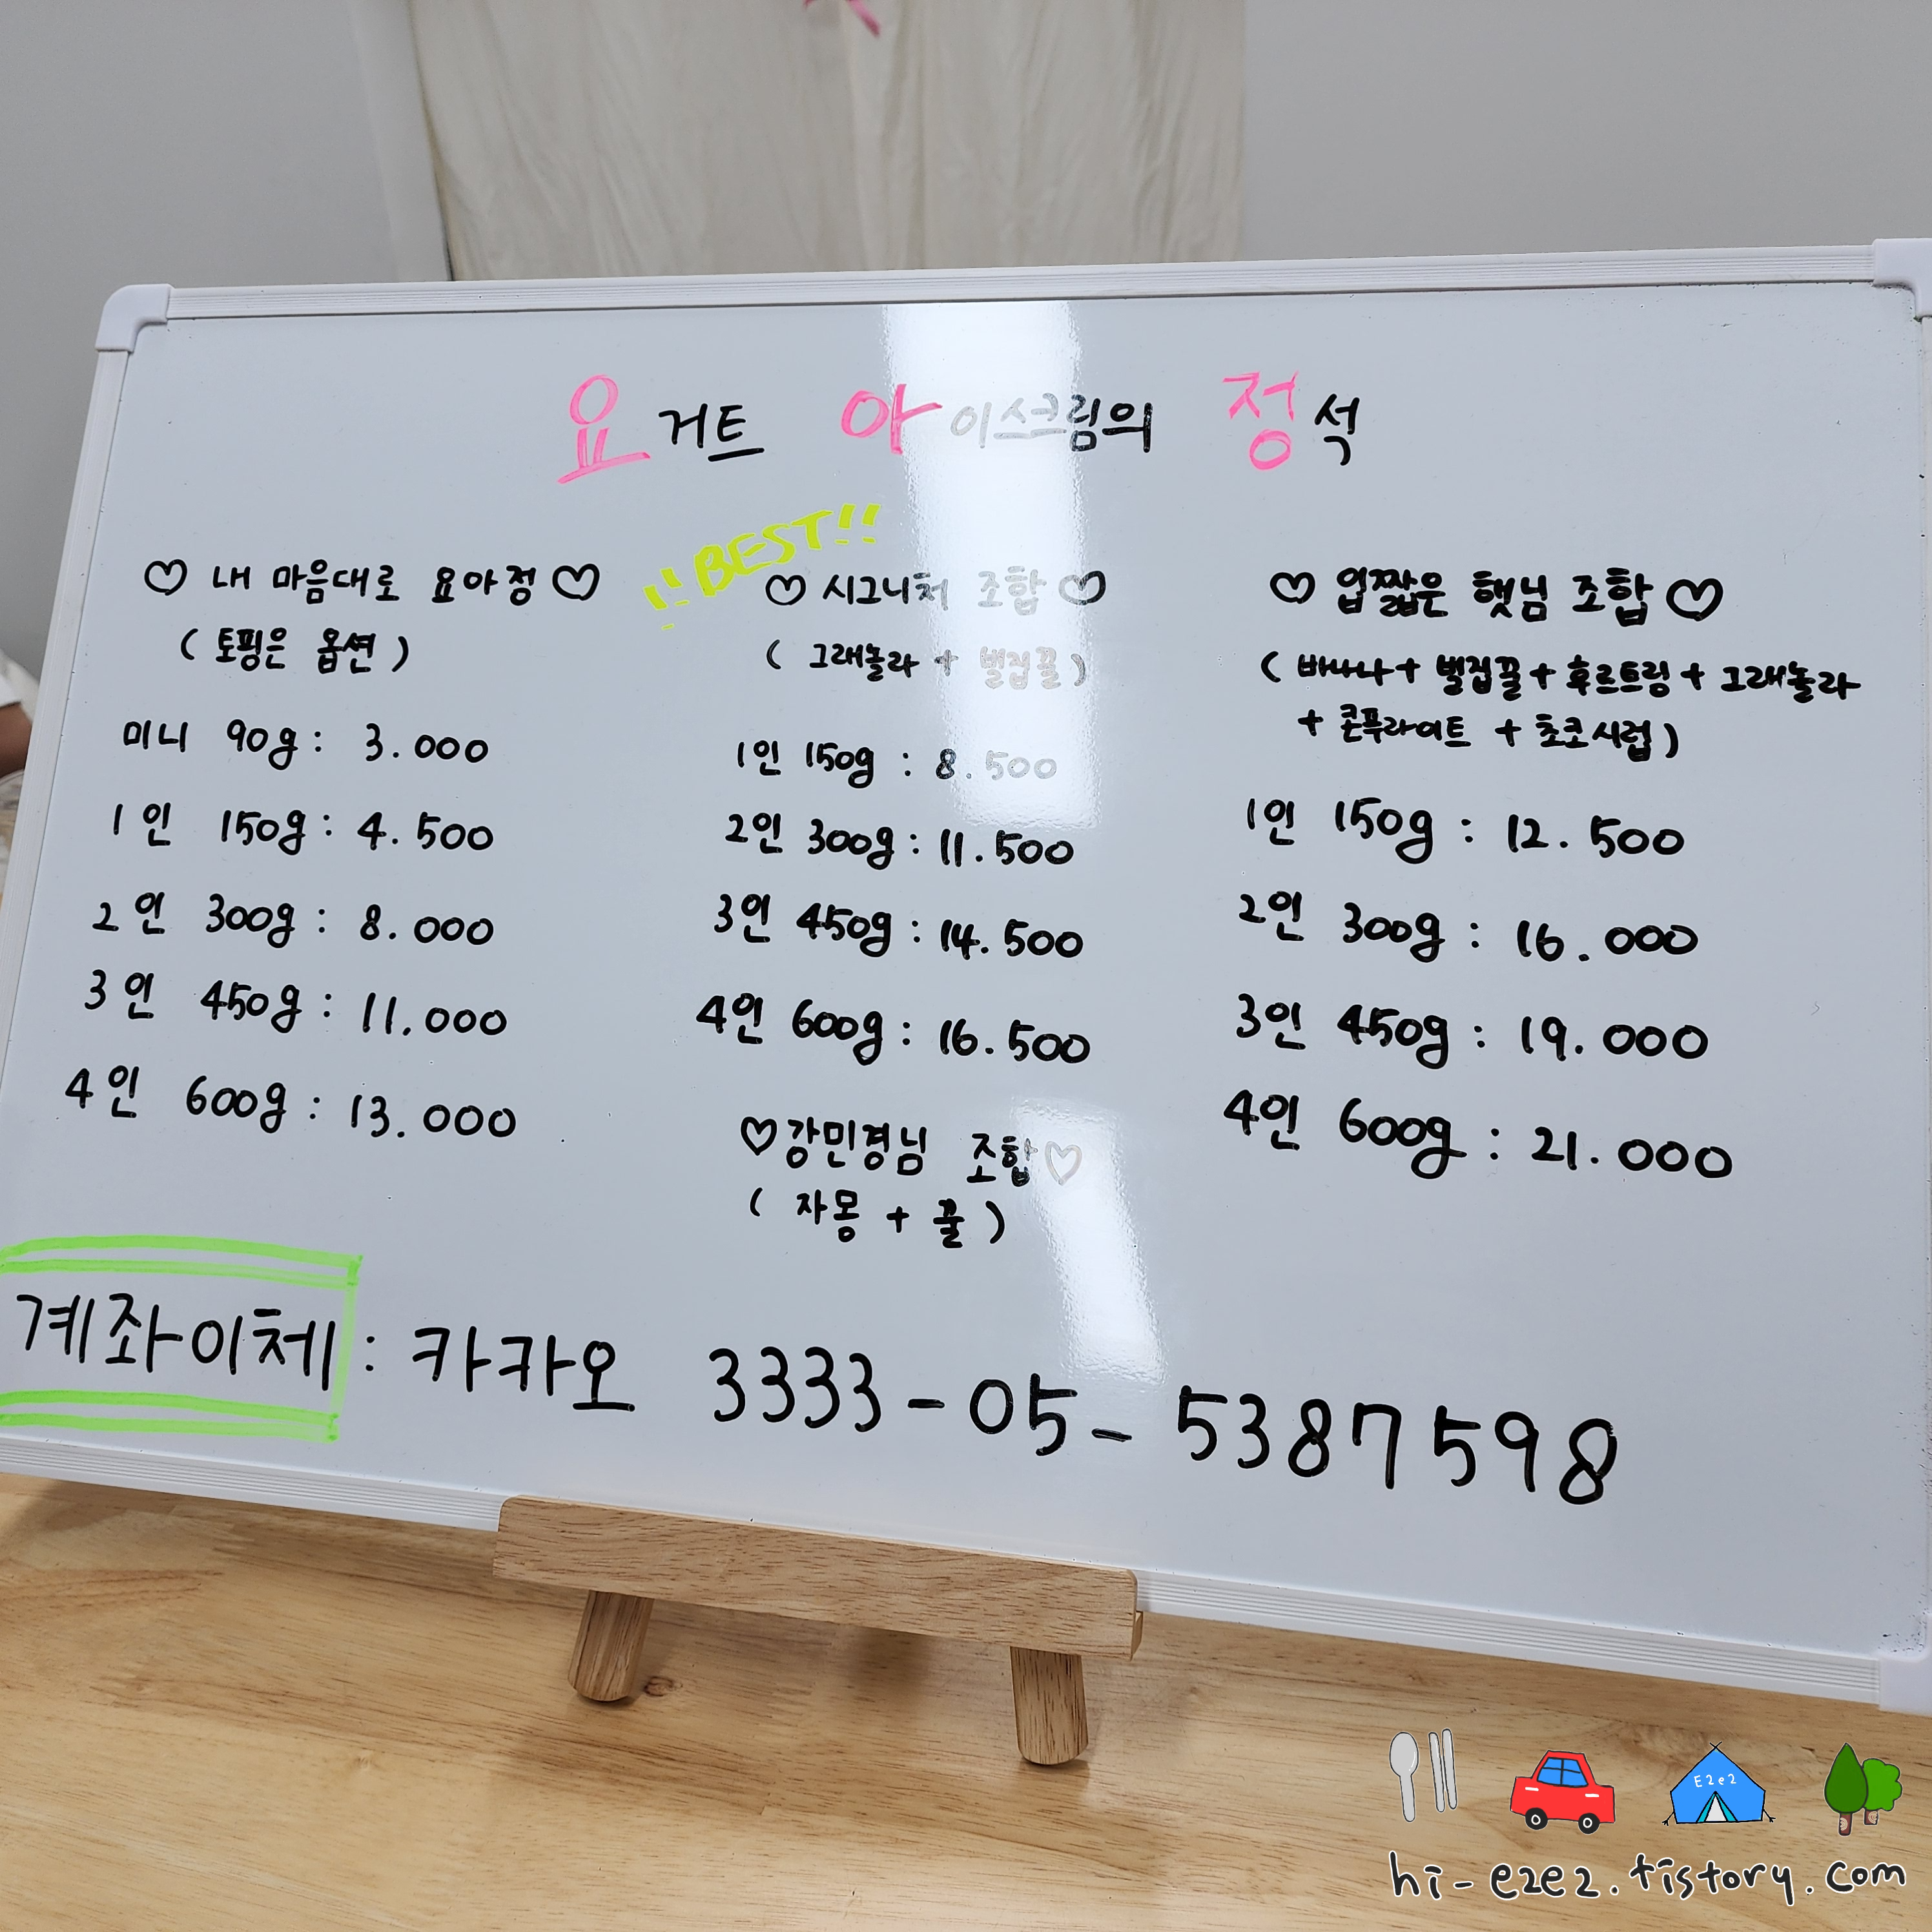 요거트 아이스크림의 정석
♡ 내 마음대로 요아정 ♡
( 토핑은 옵션 )
미니 90g : 3.000
1인 150g : 4.500
2인 300g : 8.000
3인 450g : 11.000
4인 600g : 13.000
!! BEST!!
♡ 시그니처 조합 ♡
( 그래놀라 + 벌집꿀 )
1인 150g : 8.500
2인 300g : 11.500
3인 450g : 14.500
4인 600g : 16.500
♡강민경님 조합♡
( 자몽 + 꿀 )
♡ 입짧은 햇님 조합 ♡
( 바나나 + 벌집꿀 + 후르트링 + 그래놀라
+ 콘푸라이트 + 초코시럽 )
1인 150g : 12.500
2인 300g : 16.000
3인 450g : 19.000
4인 600g : 21.000
계좌이체 : 카카오 3333-05-5387598
E2e2
hi-e2e2.tistory.com